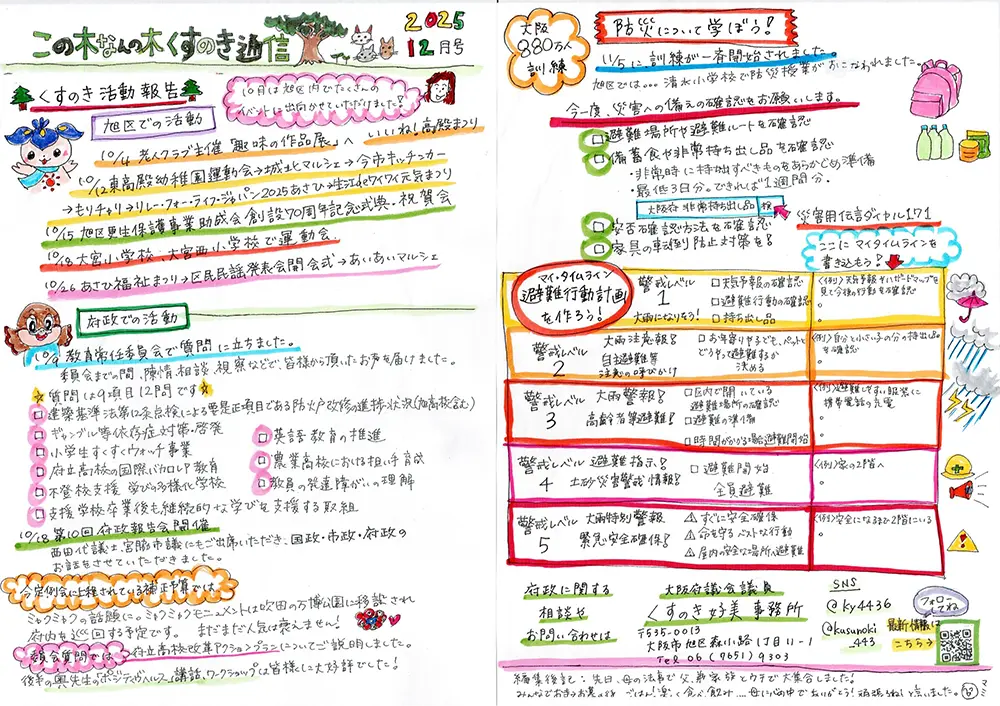 この木なんの木くすのき通信
2025
12月号
くすのき活動報告
10月は旭区内でたくさんの
イベントに出向かせていただけました!
旭区での活動
いいね!高殿まつり
10/4 老人クラブ主催「趣味の作品展」へ
10/12東高殿幼稚園運動会→城北マルシェ→今市キッチンカー
→もりチャリ→リレー・フォー・ライフ・ジャパン2025あさひ→生江deワイワイ元気まつり
10/15 旭区更生保護事業助成会創設70周年記念式典・祝賀会
10/18 大宮小学校、大宮西小学校で運動会
10/26 あさひ福祉まつり→区民民謡発表会開会式→あいあいマルシェ
府政での活動
10/9 教育常任委員会で質問に立ちました。
委員会までの間、陳情、相談、視察などで、皆様から頂いたお声を届けました。
質問は9項目12問です
□建築基準法第12条点検による要是正項目である防火戸改修の進捗状況(府立高校含む)
□ギャンブル等依存症対策・啓発
□小学生すくすくウォッチ事業
□府立高校の国際バカロレア教育
□不登校支援 学びの多様化学校
□支援学校卒業後も継続的な学びを支援する取組
□英語教育の推進
□農業高校における担い手育成
□教員の発達障がいの理解
10/18 第10回府政報告会開催
西田代議士、宮脇市議にもご出席いただき、国政・市政・府政の
お話をさせていただきました。
今定例会に上程されている補正予算では
ミャクミャクの話題に。ミャクミャクモニュメントは吹田の万博公園に移設され
府内を巡回する予定です。 まだまだ人気は衰えません!
委員会質問では 府立高校改革アクションプランについてご説明しました。
後半の奥先生の「ポジティブヘルス」講話、ワークショップは皆様に大好評でした!
大阪
880万人
訓練
防災について学ぼう!
11/5に訓練が一斉開始されました。
旭区では…清水小学校で防災授業がおこなわれました。
今一度、災害への備えの確認をお願いします。
□避難場所や避難ルートを確認
□備蓄食や非常持ち出し品を確認
・非常時に持ち出すべきものをあらかじめ準備
・最低3日分。できれば1週間分。
大阪府 非常持ち出し品 検
□安否確認方法を確認
災害用伝言ダイヤル171
□家具の転倒防止対策を!
ここにマイタイムラインを
書き込もう!
マイ・タイムライン
避難行動計画
を作ろう!
警戒レベル
1
大雨になりそう!
□天気予報の確認
□避難行動の確認
□持ち出し品
(例)天気予報やハザードマップを
見て今後の行動を確認
警戒レベル
2
大雨注意報!
自主避難等
注意の呼びかけ
□お年寄りや子ども、ペットと
どうやって避難するか
決める
(例)自分と小さい子の分の持ち出品
を確認
警戒レベル
3
大雨警報!
高齢者等避難!
□区内で開いている
避難場所の確認
□避難の準備
□時間がかかる場合避難開始
(例)避難しやすい服装に
携帯電話の充電
警戒レベル
4
避難指示!
土砂災害警戒情報!
□避難開始
全員避難
(例)家の2階へ
警戒レベル
5
大雨特別警報
緊急安全確保!
⚠すぐに安全確保
⚠命を守るベストな行動
⚠屋内の安全な場所へ避難
(例)安全になるまで2階にいる
府政に関する
相談や
お問い合わせは
大阪府議会議員
くすのき好美事務所
〒535-0013
大阪市旭区森小路1丁目11-1
Tel 06(7651)9303
SNS
@ky4436
@kusunoki
_443
フォロー
してね
最新情報は
こちら→
編集後記:先日、母の法事で父、弟家族とウチで大集合しました!